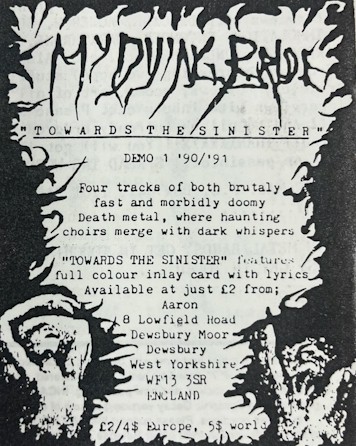 MY DYING BRIDE
"TOWARDS THE SINISTER"
DEMO 1 '90/'91
Four tracks of both brutaly
fast and morbidly doomy
Death metal, where haunting
choirs merge with dark whispers
"TOWARDS THE SINISTER" features
full colour inlay card with lyrics
Available at just £2 from;
Aaron
8 Lowfield Road
Dewsbury Moor
Dewsbury
West Yorkshire
WF13 3SR
ENGLAND
£2/4$ Europe, 5$ world